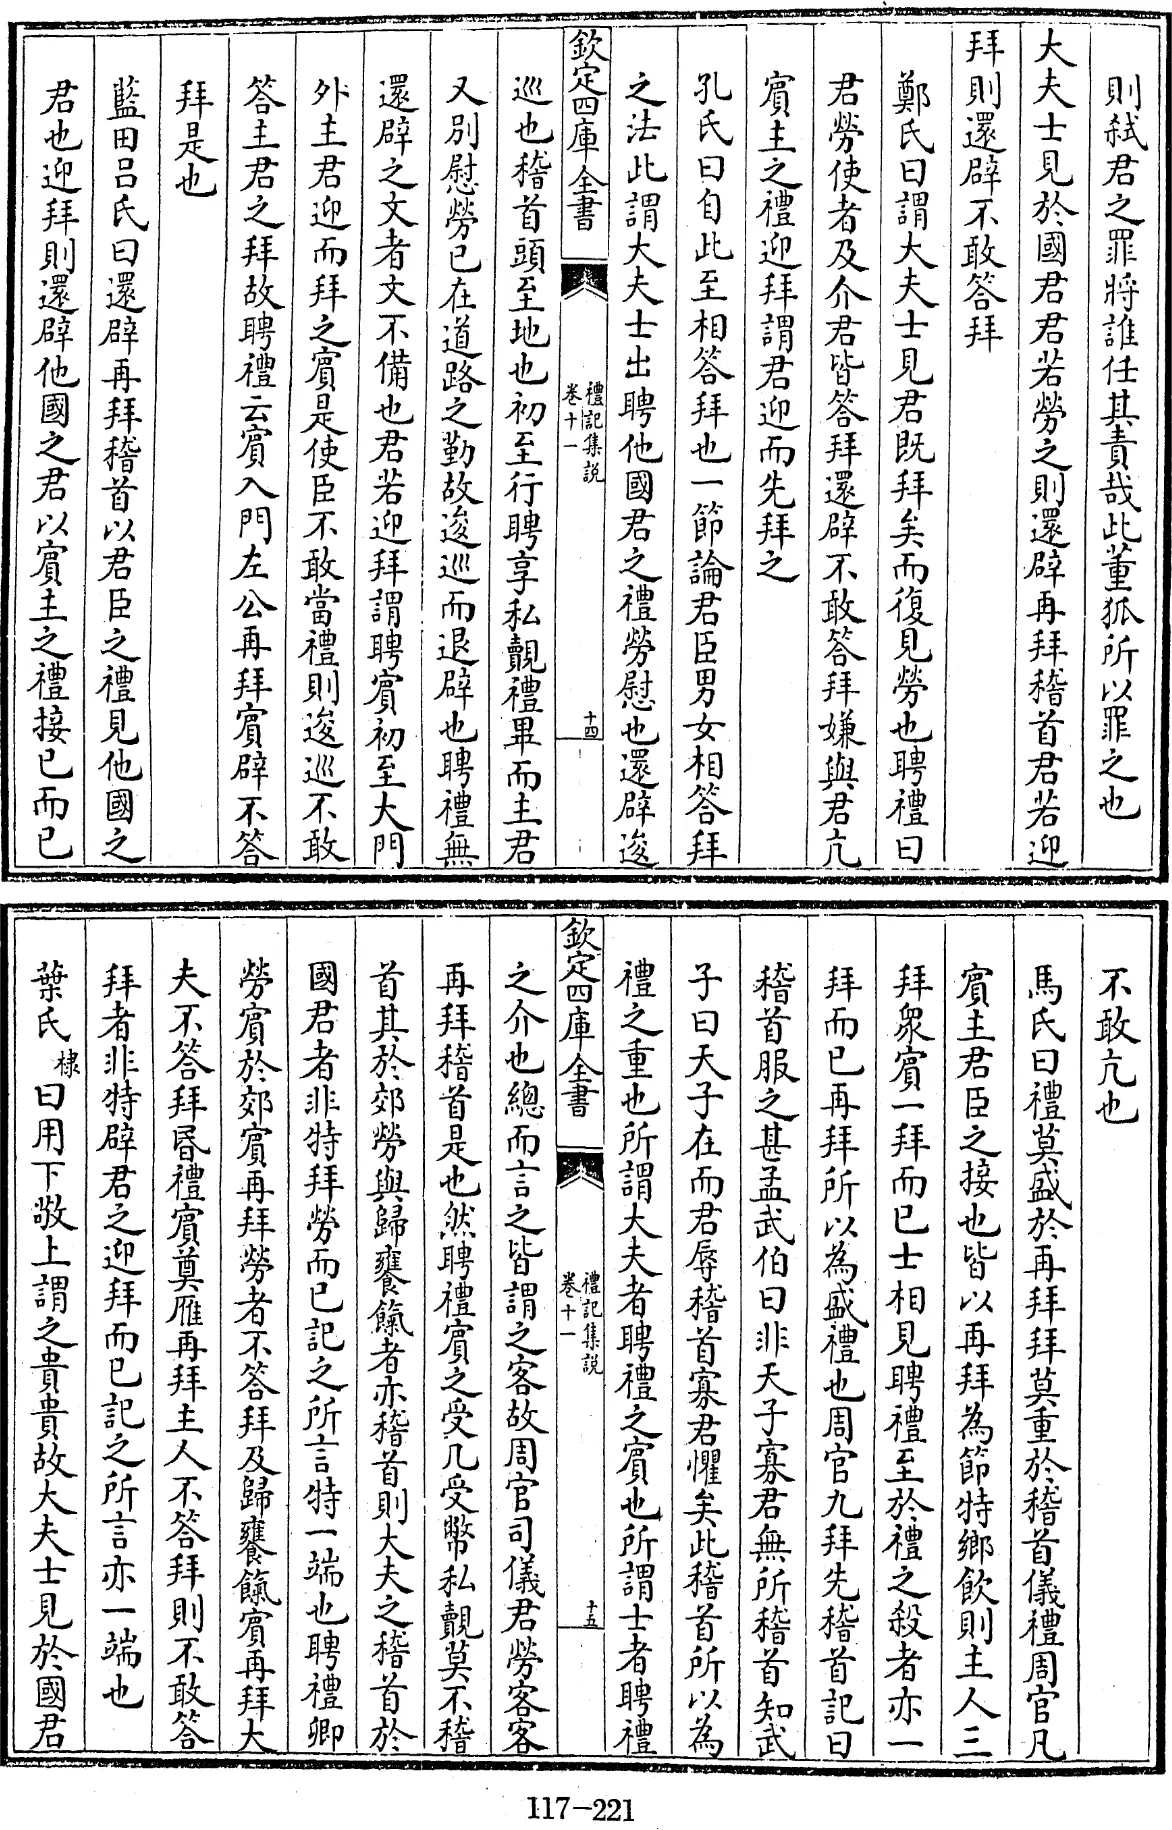 則弑君之罪將誰任其責哉此董狐所以罪之也
大夫士見於國君君若勞之則還辟再拜稽首君若迎
拜則還辟不敢答拜
鄭氏曰謂大夫士見君既拜矣而復見勞也聘禮曰
君勞使者及介君皆答拜還辟不敢答拜嫌與君亢
賓主之禮迎拜謂君迎而先拜之
孔氏曰自此至相答拜也一節論君臣男女相答拜
之法此謂大夫士出聘他國君之禮勞慰也還辟逡
欽定四庫全書
禮記集説
卷十一
十四
巡也稽首頭至地也初至行聘享私覿禮畢而主君
又別慰勞已在道路之勤故逡巡而退辟也聘禮無
還辟之文者文不備也君若迎拜謂聘賓初至大門
外主君迎而拜之賓是使臣不敢當禮則逡巡不敢
答主君之拜故聘禮云賓入門左公再拜賓辟不答
拜是也
藍田呂氏曰還辟再拜稽首以君臣之禮見他國之
君也迎拜則還辟他國之君以賓主之禮接已而已
不敢亢也
馬氏曰禮莫盛於再拜拜莫重於稽首儀禮周官凡
賓主君臣之接也皆以再拜為節特鄉飲則主人三
拜衆賓一拜而已士相見聘禮至於禮之殺者亦一
拜而已再拜所以為盛禮也周官九拜先稽首記曰
稽首服之甚孟武伯曰非天子寡君無所稽首知武
子曰天子在而君辱稽首寡君懼矣此稽首所以為
禮之重也所謂大夫者聘禮之賓也所謂士者聘禮
欽定四庫全書
禮記集説
卷十一
十五
之介也總而言之皆謂之客故周官司儀君勞客客
再拜稽首是也然聘禮賓之受几受幣私覿莫不稽
首其於郊勞與歸饔餼者亦稽首則大夫之稽首於
國君者非特拜勞而已記之所言特一端也聘禮卿
勞賓於郊賓再拜勞者不答拜及歸饔餼賓再拜大
夫不答拜昬禮賓奠雁再拜主人不答拜則不敢答
拜者非特辟君之迎拜而已記之所言亦一端也
葉氏棣曰用下敬上謂之貴貴故大夫士見於國君
117-221